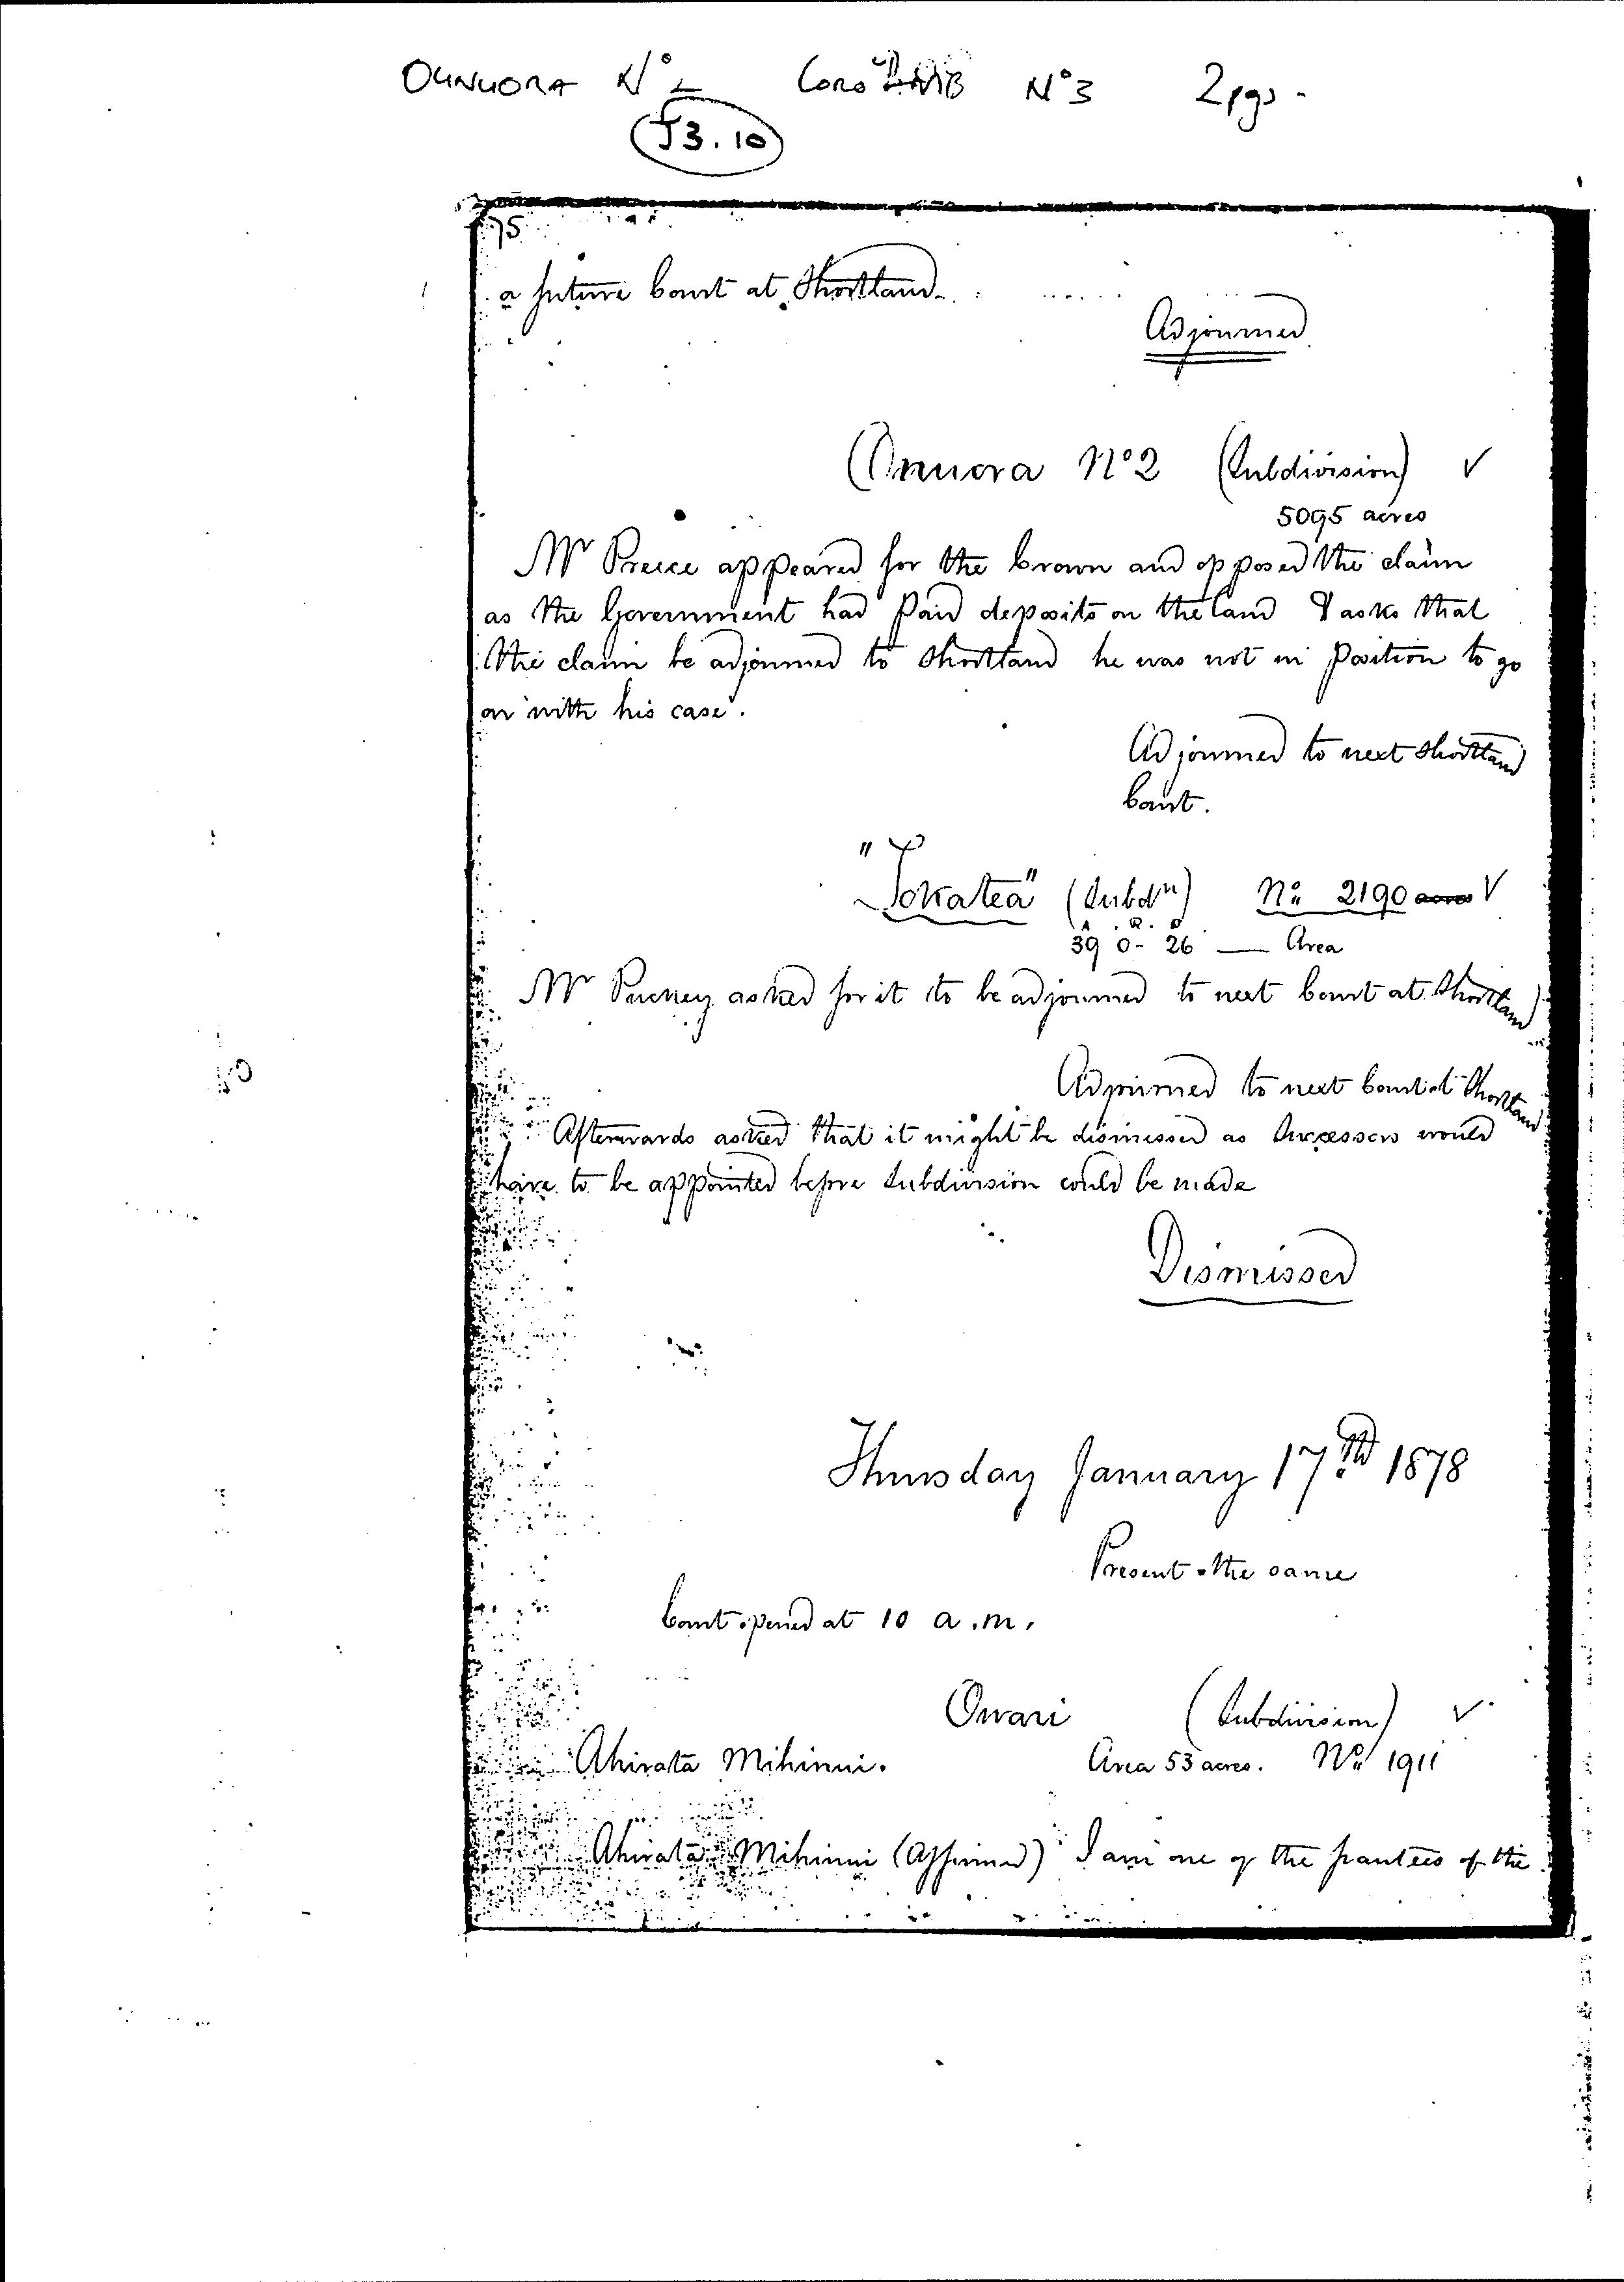 OHNUORA No 2 Coro MB No 3 2pgs -
J3.10
75
a future Court at Shortland
Adjourned
Onuora No 2 (Subdivision) ✓
5095 acres
Mr Preece appeared for the Crown and opposed the claim
as the Government had paid deposits on the land & asks that
the claim be adjourned to Shortland he was not in position to go
on with his case.
Adjourned to next Shortland
Court.
"Tokatea" (Subdn) No 2190 acres ✓
A. R. P
39 0 - 26 — Area
Mr Puckey asked for it to be adjourned to next Court at Shortland
Adjourned to next Court at Shortland
Afterwards asked that it might be dismissed as Successors would
have to be appointed before Subdivision could be made
Dismissed
Thursday January 17th 1878
Present the same
Court opened at 10 a.m.
Owari (Subdivision) ✓
Ahirata Mihinui. Area 53 acres. No 1911
Ahirata Mihinui (Affirmed) I am one of the grantees of the